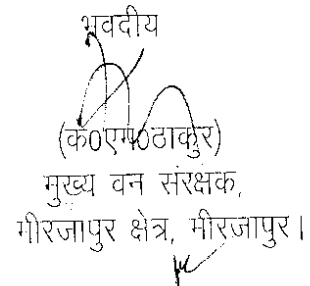 भवदीय
(के०एम०ठाकुर)
मुख्य वन संरक्षक,
मीरजापुर क्षेत्र, मीरजापुर।